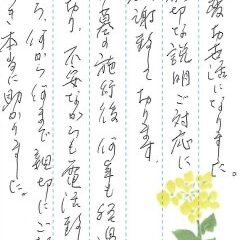 変お世話になりました。
切な説明ご対応に
謝致しております。
墓の施行後、何年も経過
あり、不安ながらも電話致
ろ、何から何まで親切にご
き本当に助かりました。